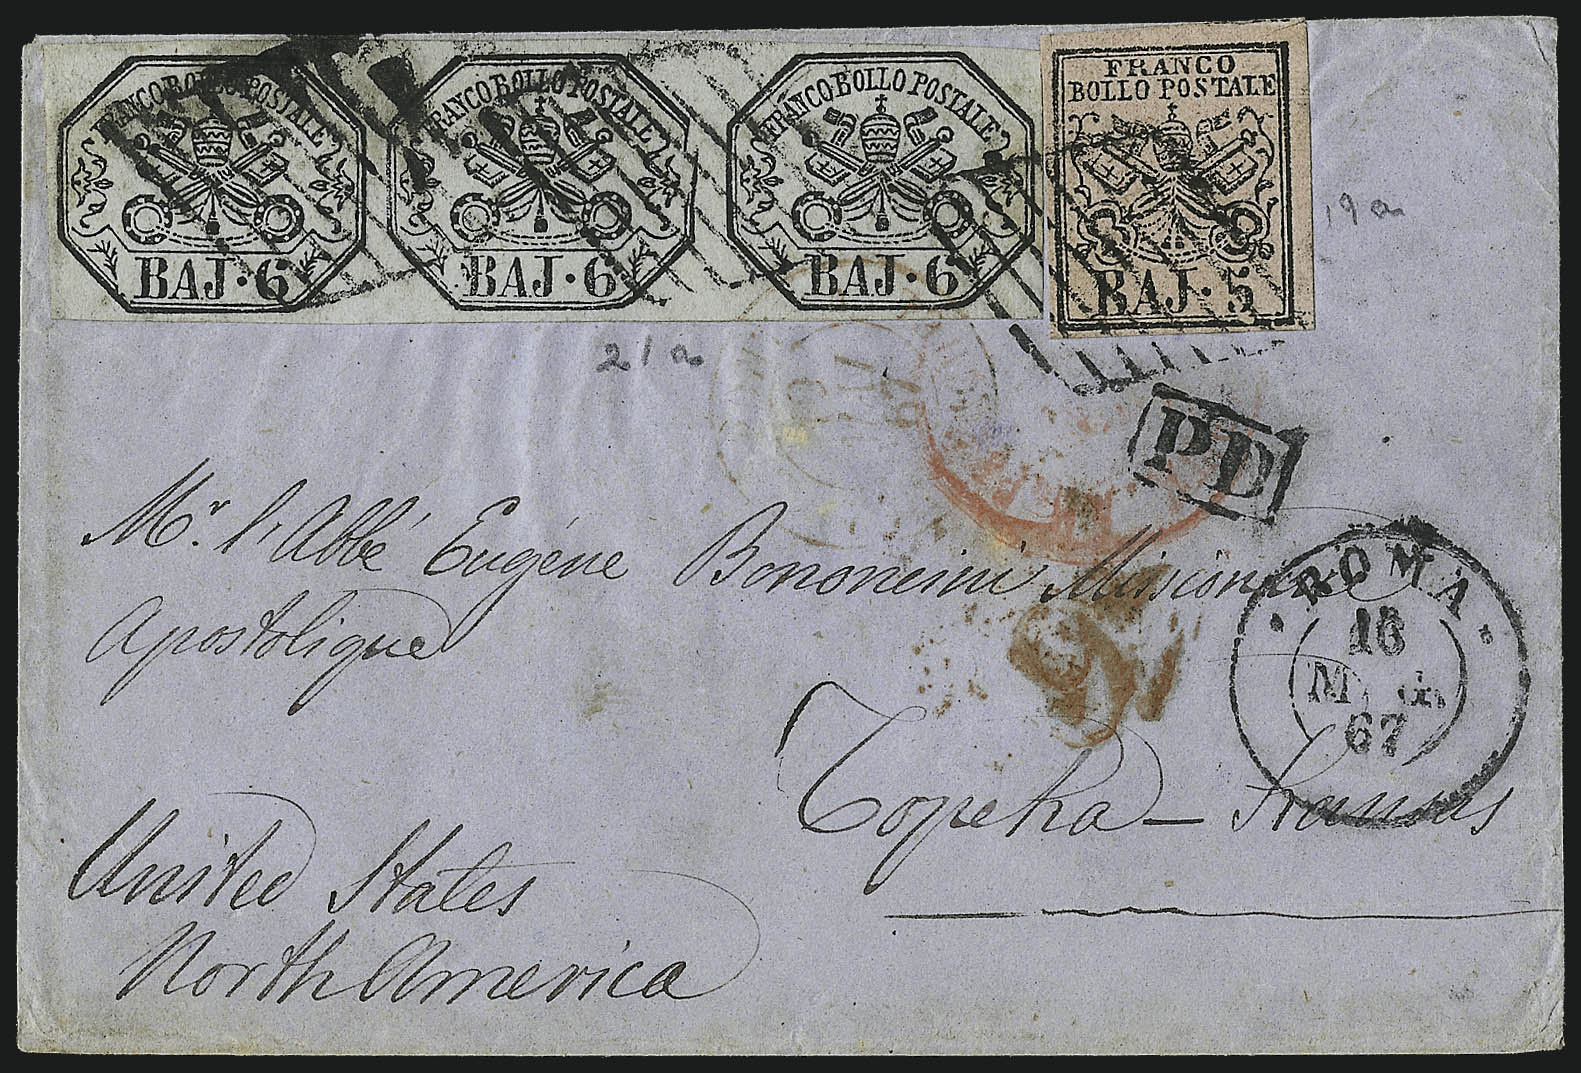 FRANCO BOLLO POSTALE
BAJ · 6
FRANCO BOLLO POSTALE
BAJ · 6
FRANCO BOLLO POSTALE
BAJ · 6
FRANCO
BOLLO POSTALE
BAJ · 5
19a
21a
PD
Mr. l'Abbé Eugéne Bononcini Missionaire
Apostolique
ROMA
16
67
Topeka – Kansas
United States
North America